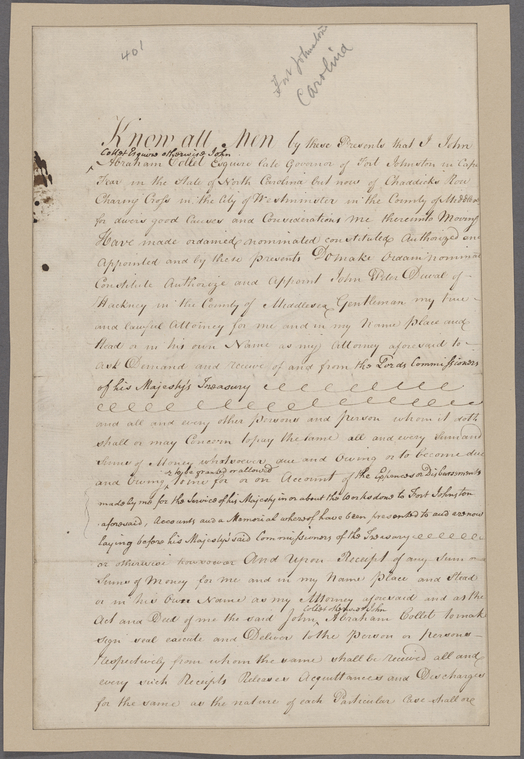 401
Fort Johnston
Carolina
Know all Men by these Presents that I John
Collet Esquire otherwise John
Abraham Collet Esquire late Governor of Fort Johnston in Cape
Fear in the State of North Carolina but now of Chaddicks Row
Charing Cross in the City of Westminster in the County of Middlesex
for divers good Causes and Considerations me thereunto Moving
Have made ordained nominated constituted Authorized and
Appointed and by these presents Do make Ordain nominate
Constitute Authorize and Appoint John Peter Duval of
Hackney in the County of Middlesex Gentleman my true
and lawful Attorney for me and in my Name place and
Stead or in his own Name as my Attorney aforesaid to
ask Demand and receive of and from the Lords Commissioners
of his Majesty's Treasury
and all and every other persons and person whom it doth
shall or may Concern to pay the same all and every Sum and
Sums of Money whatsoever due and owing or to become due
or to be granted or allowed
and Owing to me for or on Account of the Expences or Disbursements
made by me for the Service of his Majesty in or about the works done to Fort Johnston
aforesaid, Accounts and a Memorial whereof have been presented to and are now
laying before his Majesty's said Commissioners of the Treasury
or otherwise howsoever And Upon Receipt of any Sum or
Sums of Money for me and in my Name place and Stead
or in his Own Name as my Attorney aforesaid and as the
Act and Deed of me the said John
Collet otherwise John
Abraham Collet to make
sign seal execute and Deliver to the person or persons
respectively from whom the same shall be received all and
every such Receipts Releases Acquittances and Discharges
for the same as the nature of each Particular Case shall re